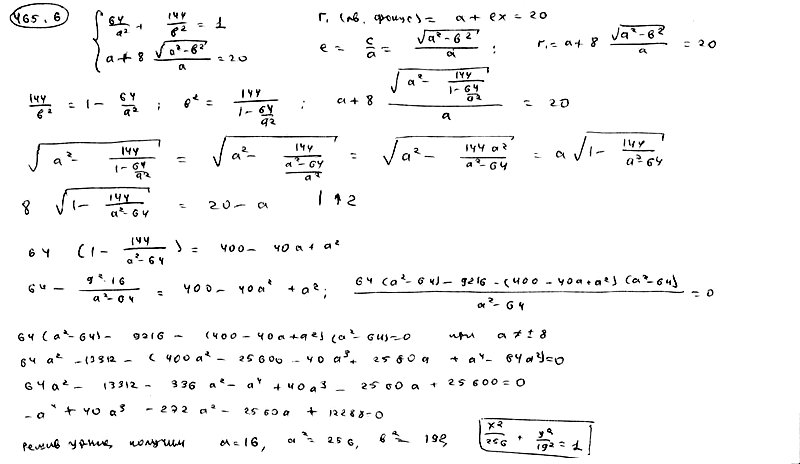 465.6
64/a² + 144/b² = 1
a + 8 √(a²-b²)/a = 20
r₁ (лв. фокус) = a + ex = 20
e = c/a = √(a²-b²)/a ; r₁ = a + 8 √(a²-b²)/a = 20
144/b² = 1 - 64/a² ; b² = 144/(1 - 64/a²) ; a + 8 √(a² - 144/(1 - 64/a²))/a = 20
√(a² - 144/(1 - 64/a²)) = √(a² - 144/((a²-64)/a²)) = √(a² - 144a²/(a²-64)) = a √(1 - 144/(a²-64))
8 √(1 - 144/(a²-64)) = 20 - a | ↑2
64 (1 - 144/(a²-64)) = 400 - 40a + a²
64 - 9²·16/(a²-64) = 400 - 40a² + a² ; (64(a²-64) - 9216 - (400 - 40a + a²)(a²-64))/(a²-64) = 0
64(a²-64) - 9216 - (400 - 40a + a²)(a²-64) = 0 при a ≠ ± 8
64a² - 13312 - (400a² - 25600 - 40a³ + 2560a + a⁴ - 64a²) = 0
64a² - 13312 - 336a² - a⁴ + 40a³ - 2560a + 25600 = 0
-a⁴ + 40a³ - 272a² - 2560a + 12288 = 0
решив ур-ние, получим a = 16, a² = 256, b² = 192, x²/256 + y²/192 = 1